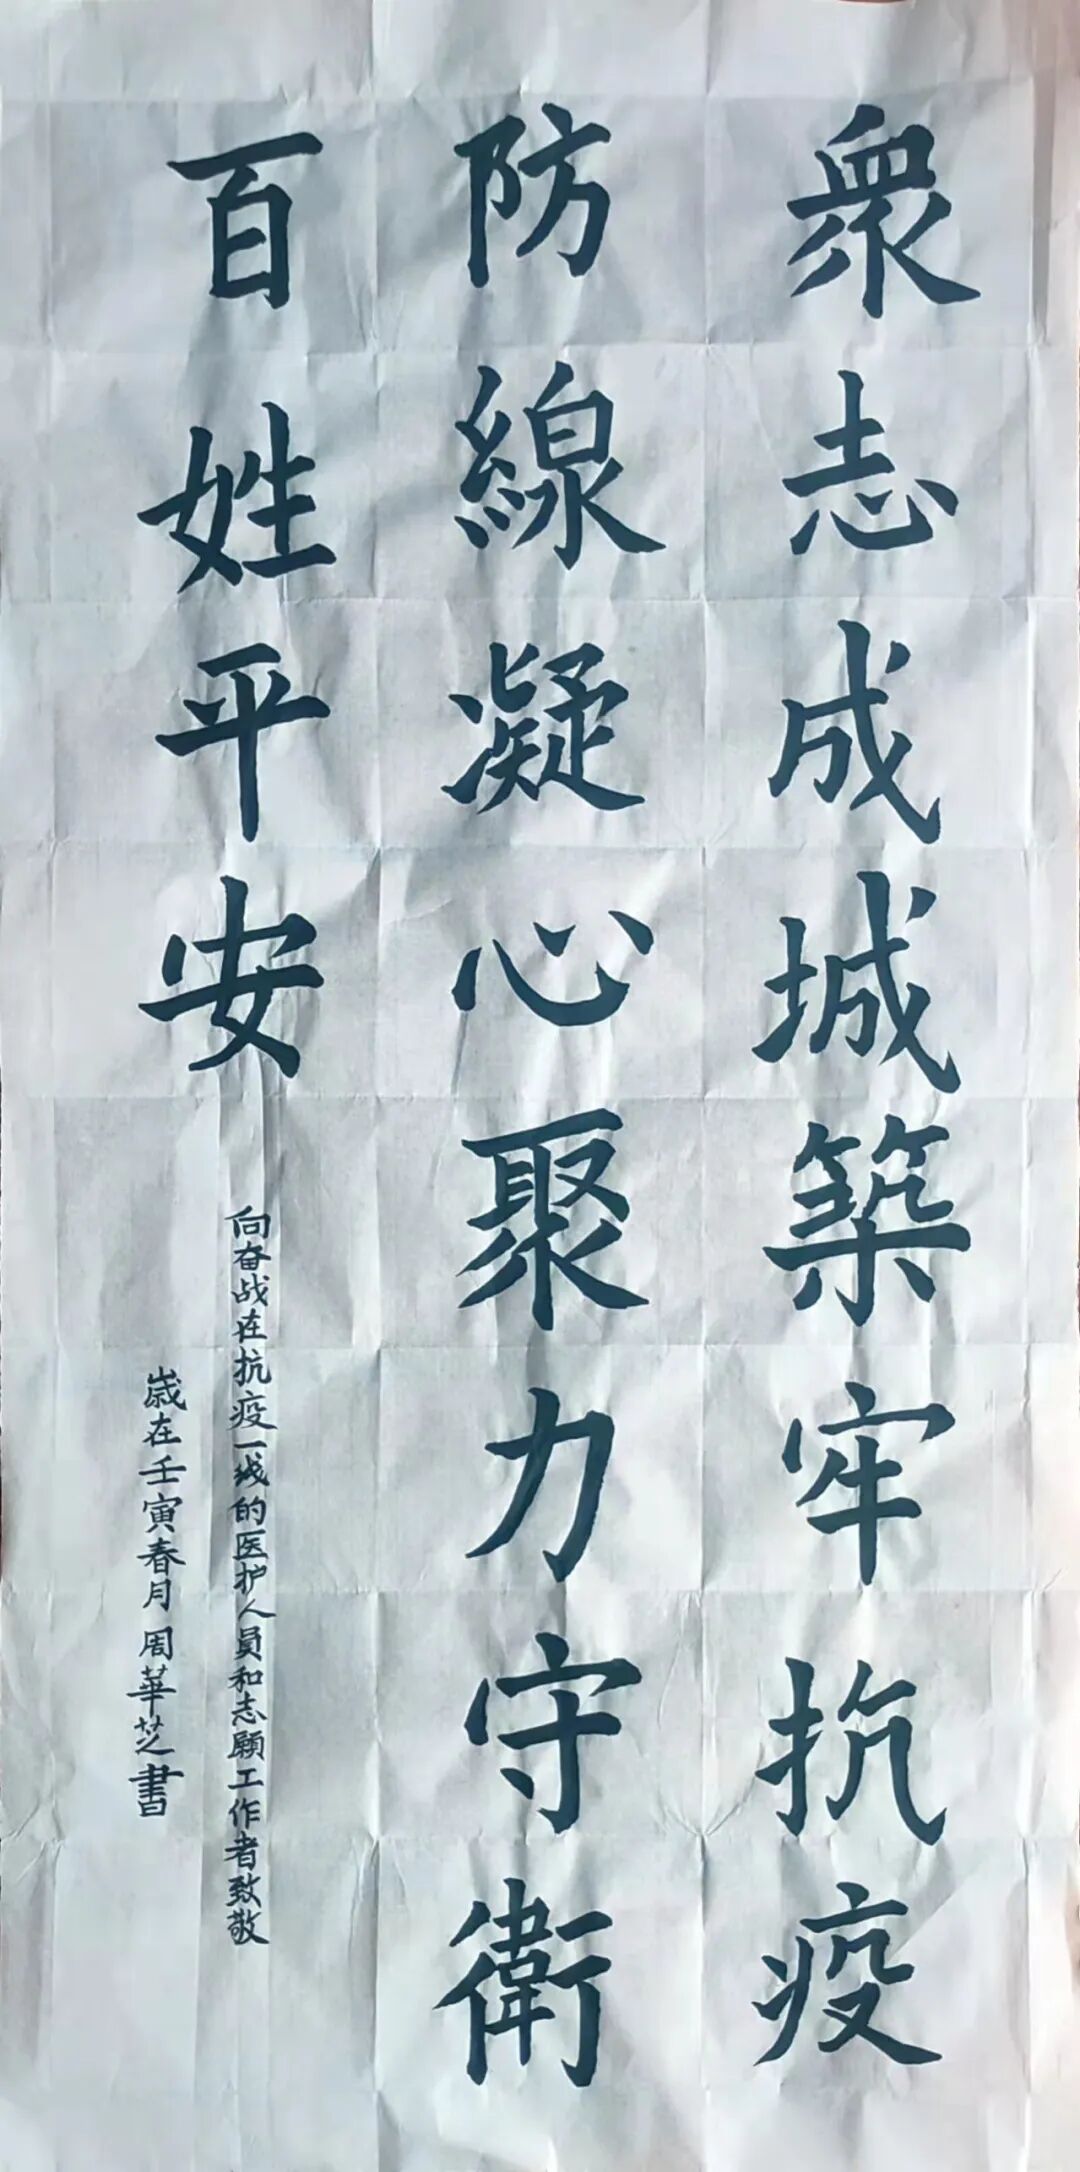 衆志成城築牢抗疫
防線凝心聚力守衛
百姓平安
向奋战在抗疫一线的医护人员和志愿工作者致敬
歲在壬寅春月周華芝書